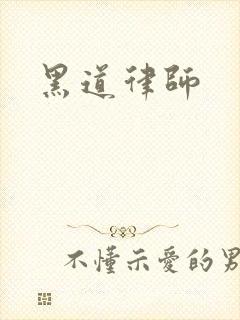 黑道律師
不懂示愛的男